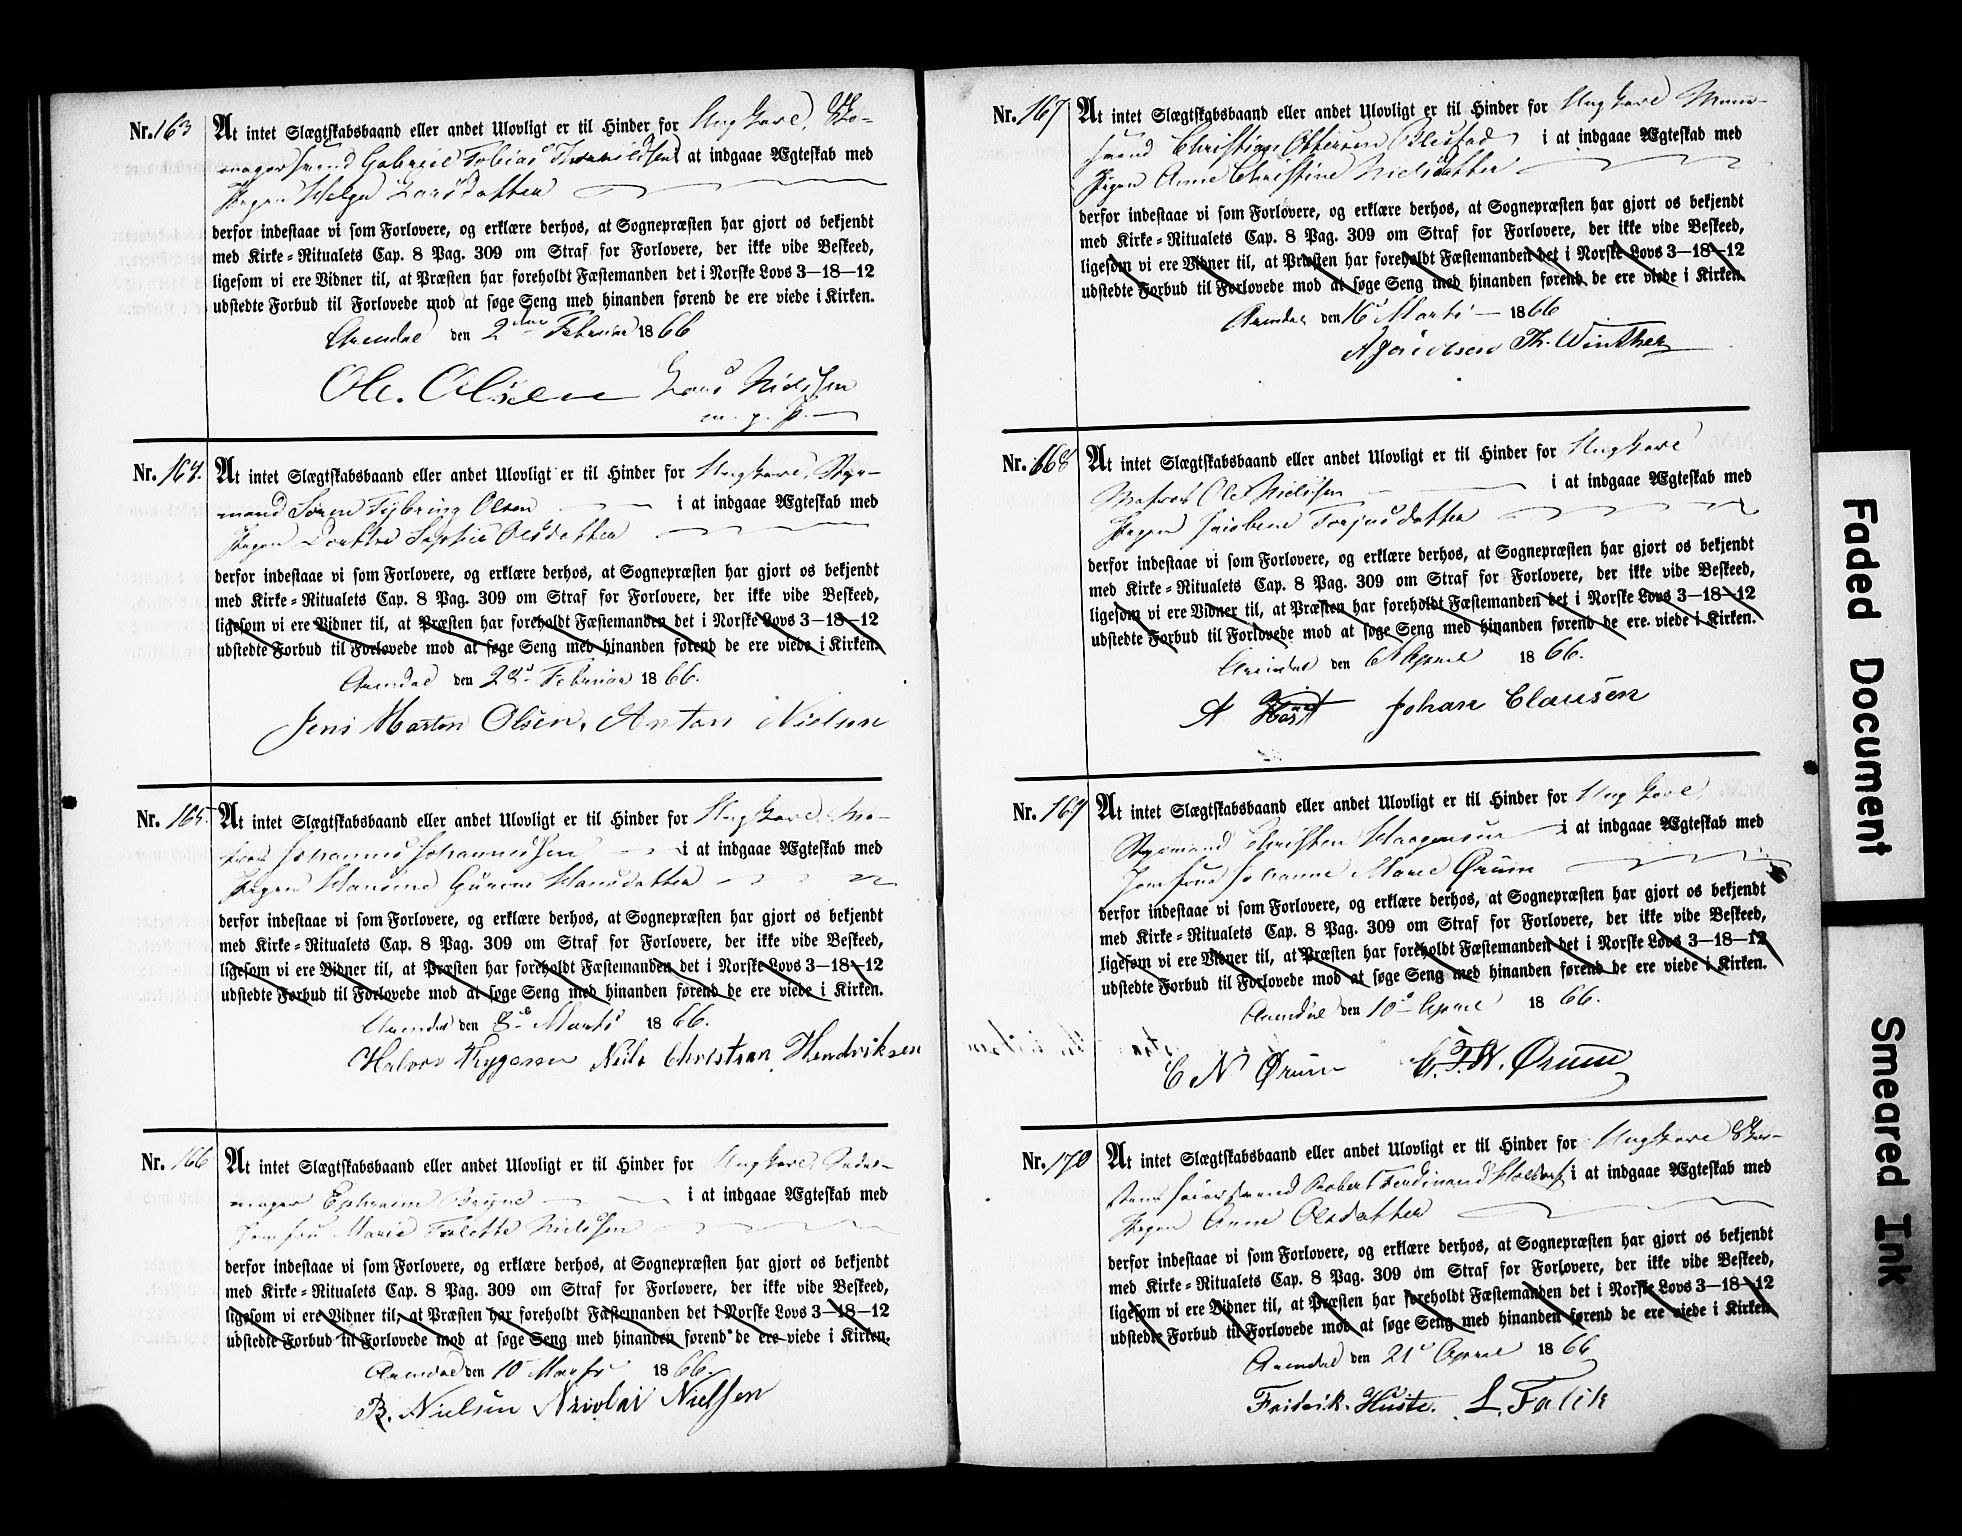 Nr. 163 At intet Slægtskabsbaand eller andet Ulovligt er til Hinder for Ungkarl, Sko-
magersvend Gabriel Tobias Thorkildsen i at indgaae Ægteskab med
Pigen Helga Larsdatter
derfor indestaae vi som Forlovere, og erklære derhos, at Sognepræsten har gjort os bekjendt
med Kirke-Ritualets Cap. 8 Pag. 309 om Straf for Forlovere, der ikke vide Beskeed,
ligesom vi ere Vidner til, at Præsten har foreholdt Fæstemanden det i Norske Lovs 3—18—12
udstedte Forbud til Forlovede mod at søge Seng med hinanden førend de ere viede i Kirken.
Arendal den 2den Februar 1866
Ole. Olsen Lars Nielsen
m. p. P.
Nr. 164. At intet Slægtskabsbaand eller andet Ulovligt er til Hinder for Ungkarl, Styr-
mand Søren Fybring Olsen i at indgaae Ægteskab med
Pigen Dorthe Sophie Olsdatter
derfor indestaae vi som Forlovere, og erklære derhos, at Sognepræsten har gjort os bekjendt
med Kirke-Ritualets Cap. 8 Pag. 309 om Straf for Forlovere, der ikke vide Beskeed,
ligesom vi ere Vidner til, at Præsten har foreholdt Fæstemanden det i Norske Lovs 3—18—12
udstedte Forbud til Forlovede mod at søge Seng med hinanden førend de ere viede i Kirken.
Arendal den 28d Februar 1866.
Jens Morten Olsen, Anton Nielsen
Nr. 165. At intet Slægtskabsbaand eller andet Ulovligt er til Hinder for Ungkarl, Ma-
tros Johannes Johannessen i at indgaae Ægteskab med
Pigen Hansine Gurine Hansdatter
derfor indestaae vi som Forlovere, og erklære derhos, at Sognepræsten har gjort os bekjendt
med Kirke-Ritualets Cap. 8 Pag. 309 om Straf for Forlovere, der ikke vide Beskeed,
ligesom vi ere Vidner til, at Præsten har foreholdt Fæstemanden det i Norske Lovs 3—18—12
udstedte Forbud til Forlovede mod at søge Seng med hinanden førend de ere viede i Kirken.
Arendal den 8d Marts 1866.
Halvor Thygesen Neils Christian Hendriksen
Nr. 166 At intet Slægtskabsbaand eller andet Ulovligt er til Hinder for Ungkarl, Sadel-
mager Ephraim i at indgaae Ægteskab med
Jomfru Marie Nielsen
derfor indestaae vi som Forlovere, og erklære derhos, at Sognepræsten har gjort os bekjendt
med Kirke-Ritualets Cap. 8 Pag. 309 om Straf for Forlovere, der ikke vide Beskeed,
ligesom vi ere Vidner til, at Præsten har foreholdt Fæstemanden det i Norske Lovs 3—18—12
udstedte Forbud til Forlovede mod at søge Seng med hinanden førend de ere viede i Kirken.
Arendal den 10 Marts 1866.
B. Nielsen Nicolai Nielsen
Nr. 167 At intet Slægtskabsbaand eller andet Ulovligt er til Hinder for Ungkarl
Christian Ottersen i at indgaae Ægteskab med
Pigen Anne Christine Nielsdatter
derfor indestaae vi som Forlovere, og erklære derhos, at Sognepræsten har gjort os bekjendt
med Kirke-Ritualets Cap. 8 Pag. 309 om Straf for Forlovere, der ikke vide Beskeed,
ligesom vi ere Vidner til, at Præsten har foreholdt Fæstemanden det i Norske Lovs 3—18—12
udstedte Forbud til Forlovede mod at søge Seng med hinanden førend de ere viede i Kirken.
Arendal den 16 Marts 1866
A Jacobsen Th. Winther
Nr. 168 At intet Slægtskabsbaand eller andet Ulovligt er til Hinder for Ungkarl
Matros Ole Nielsen i at indgaae Ægteskab med
Pigen Jacobine Torjusdatter
derfor indestaae vi som Forlovere, og erklære derhos, at Sognepræsten har gjort os bekjendt
med Kirke-Ritualets Cap. 8 Pag. 309 om Straf for Forlovere, der ikke vide Beskeed,
ligesom vi ere Vidner til, at Præsten har foreholdt Fæstemanden det i Norske Lovs 3—18—12
udstedte Forbud til Forlovede mod at søge Seng med hinanden førend de ere viede i Kirken.
Arendal den 6 April 1866.
A Johan Clausen
Nr. 169 At intet Slægtskabsbaand eller andet Ulovligt er til Hinder for Ungkarl,
Styrmand Christen Haagensen i at indgaae Ægteskab med
Jomfrue Johanne Marie Ørum
derfor indestaae vi som Forlovere, og erklære derhos, at Sognepræsten har gjort os bekjendt
med Kirke-Ritualets Cap. 8 Pag. 309 om Straf for Forlovere, der ikke vide Beskeed,
ligesom vi ere Vidner til, at Præsten har foreholdt Fæstemanden det i Norske Lovs 3—18—12
udstedte Forbud til Forlovede mod at søge Seng med hinanden førend de ere viede i Kirken.
Arendal den 10d April 1866.
C N Ørum C. F. W. Ørum
Nr. 170 At intet Slægtskabsbaand eller andet Ulovligt er til Hinder for Ungkarl Skor-
stensfeiersvend Robert Ferdinand i at indgaae Ægteskab med
Pigen Anne Olsdatter
derfor indestaae vi som Forlovere, og erklære derhos, at Sognepræsten har gjort os bekjendt
med Kirke-Ritualets Cap. 8 Pag. 309 om Straf for Forlovere, der ikke vide Beskeed,
ligesom vi ere Vidner til, at Præsten har foreholdt Fæstemanden det i Norske Lovs 3—18—12
udstedte Forbud til Forlovede mod at søge Seng med hinanden førend de ere viede i Kirken.
Arendal den 21d April 1866
Fridrik. Huste. L. Falik
Faded Document
Smeared Ink